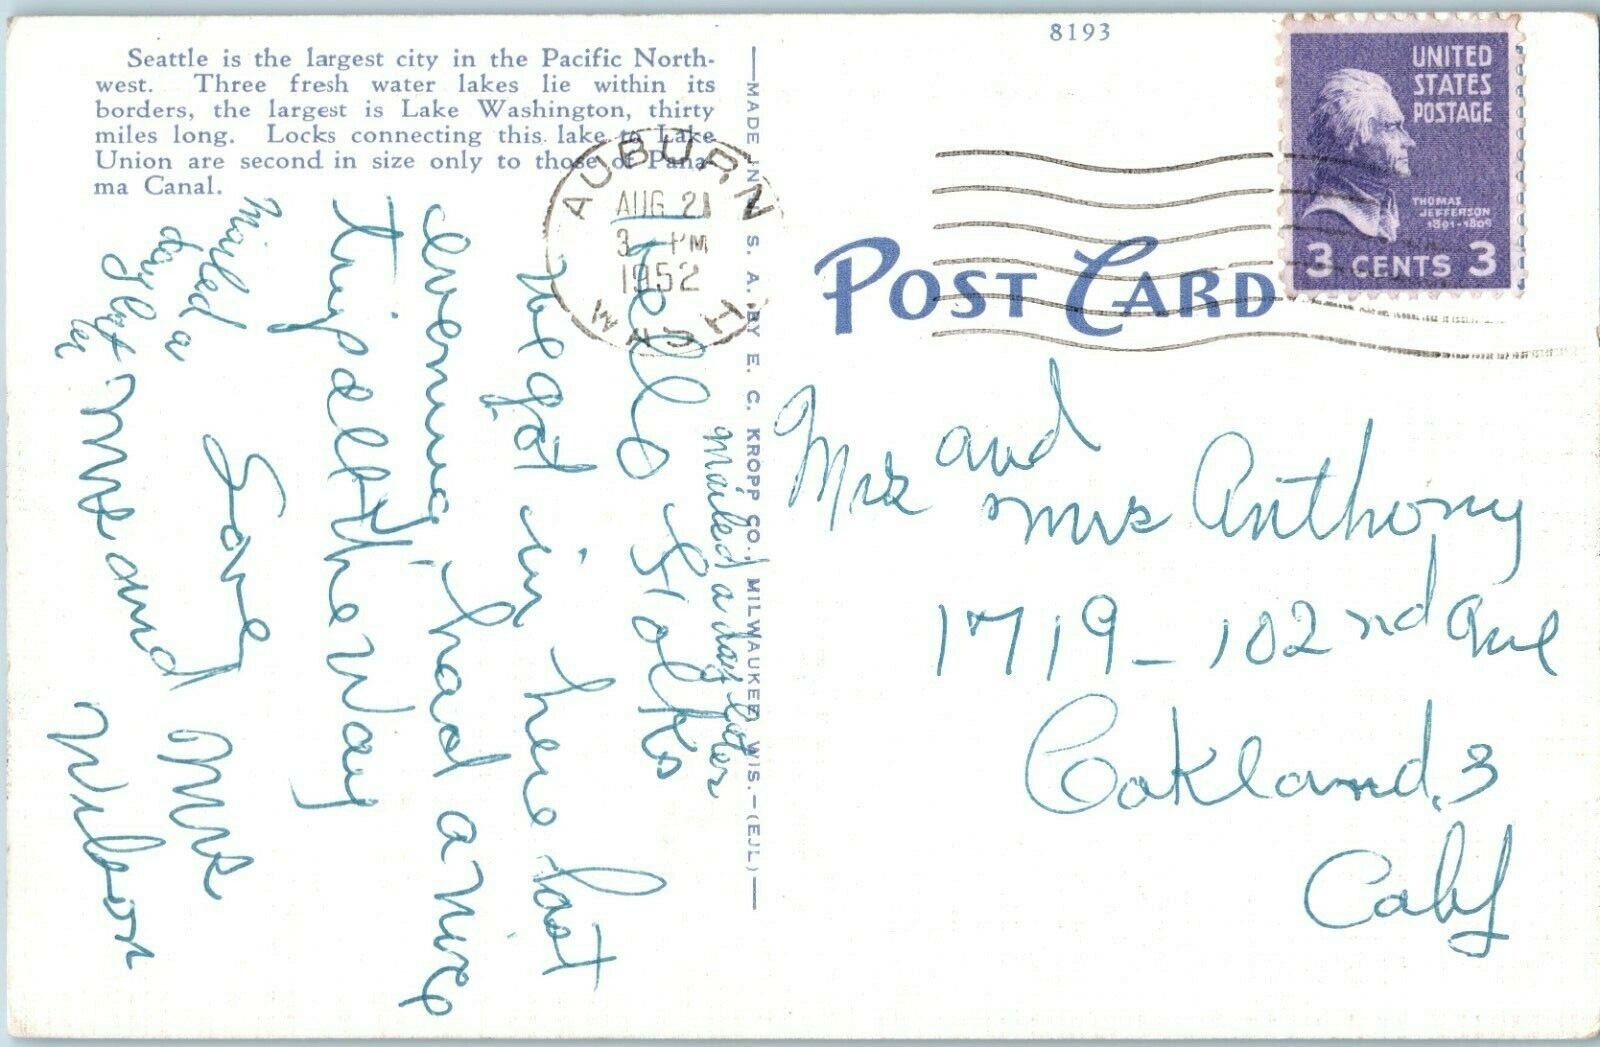 8193
Seattle is the largest city in the Pacific North-
west. Three fresh water lakes lie within its
borders, the largest is Lake Washington, thirty
miles long. Locks connecting this lake to Lake
Union are second in size only to those of Pana-
ma Canal.
AUBURN
AUG 21
3 PM
1952
WASH
UNITED
STATES
POSTAGE
THOMAS
JEFFERSON
1801-1809
3 CENTS 3
POST CARD
—MADE IN U. S. A. BY E. C. KROPP CO., MILWAUKEE, WIS.—(EJL)—
Mailed a day later
Hello Folks
We got in here last
evening had a nice
trip all the way
Love
Mr and Mrs
Wilson
Mailed a
day later
Mr and
Mrs Anthony
1719-102nd Ave
Oakland, 3
Calif